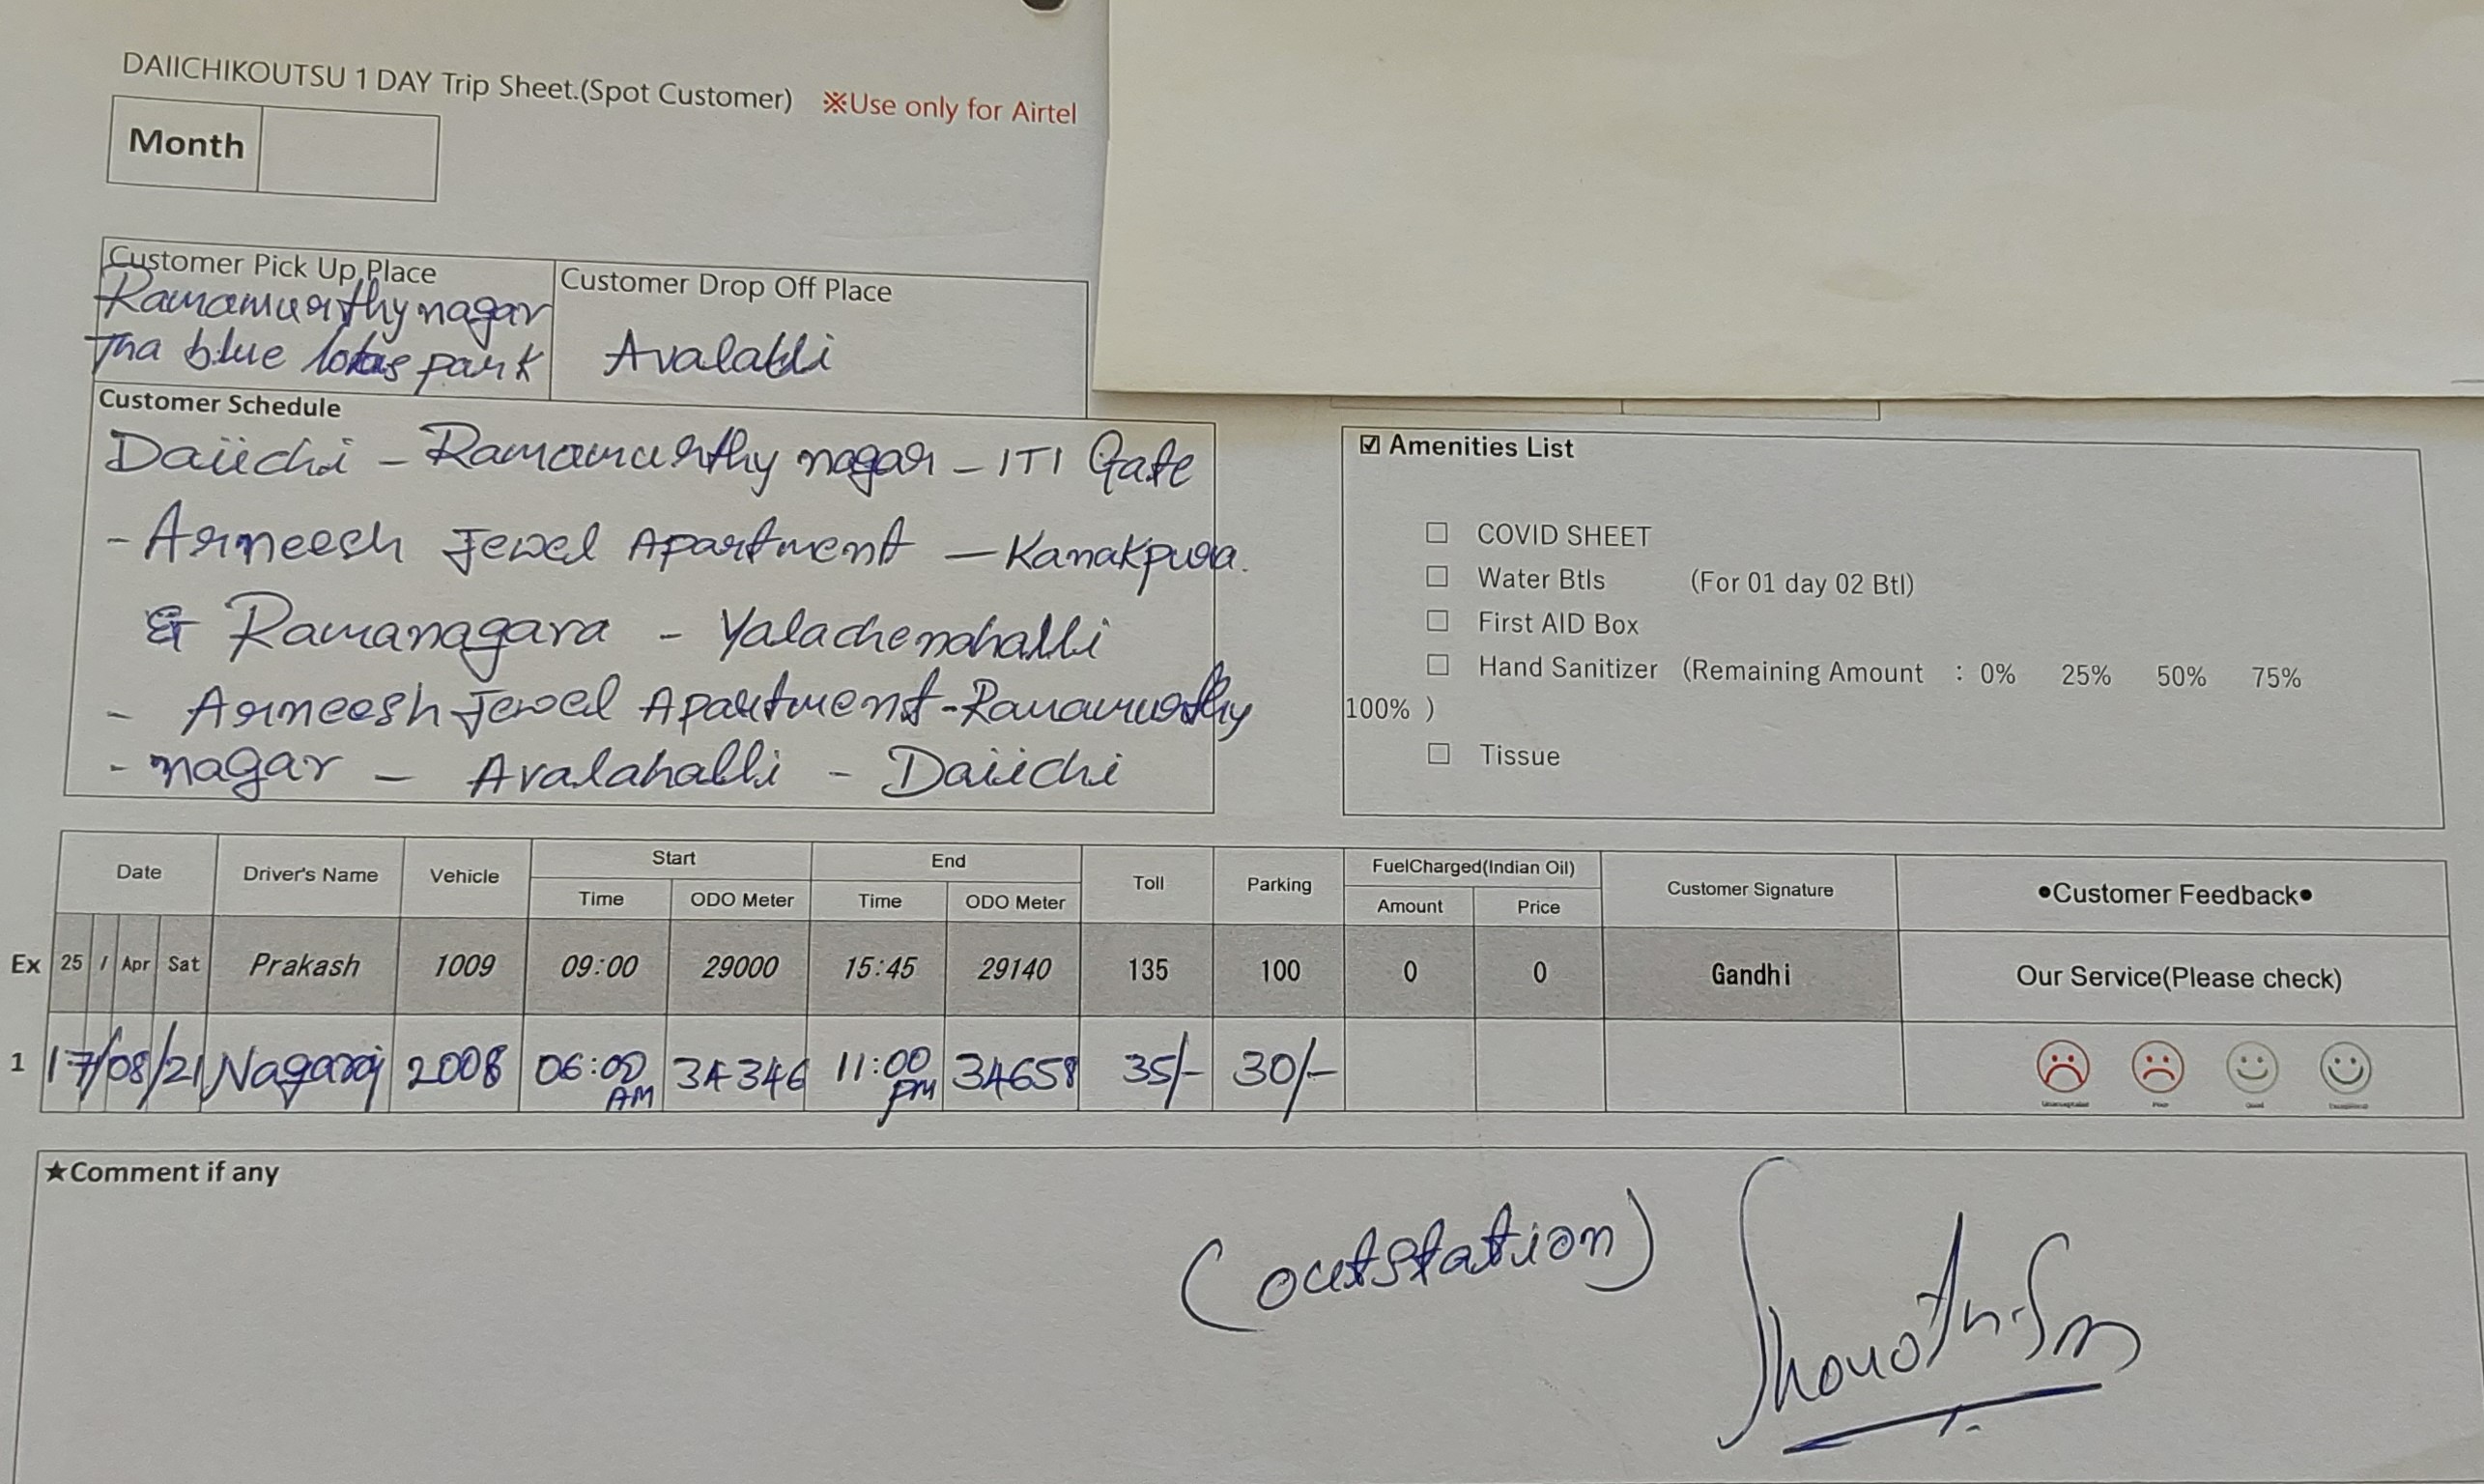 DAIICHIKOUTSU 1 DAY Trip Sheet.(Spot Customer) ※Use only for Airtel
Month
Customer Pick Up Place
Ramamurthy nagar
Tha blue lotus park
Customer Drop Off Place
Avalahli
Customer Schedule
Daiichi - Ramamurthy nagar - ITI Gate
- Armeesh Jewel Apartment - Kanakpura.
& Ramanagara - Yalachenahalli
- Armeesh Jewel Apartment - Ramamurthy
- nagar - Avalahalli - Daiichi
☑ Amenities List
☐ COVID SHEET
☐ Water Btls (For 01 day 02 Btl)
☐ First AID Box
☐ Hand Sanitizer (Remaining Amount : 0% 25% 50% 75%
100% )
☐ Tissue
Date Driver's Name Vehicle Start End Toll Parking FuelCharged(Indian Oil) Customer Signature ●Customer Feedback●
Time ODO Meter Time ODO Meter Amount Price
Ex 25 / Apr Sat Prakash 1009 09:00 29000 15:45 29140 135 100 0 0 Gandhi Our Service(Please check)
1 17/08/21 Nagaraj 2008 06:00 AM 34346 11:00 PM 34658 35/- 30/-
★Comment if any
(outstation)